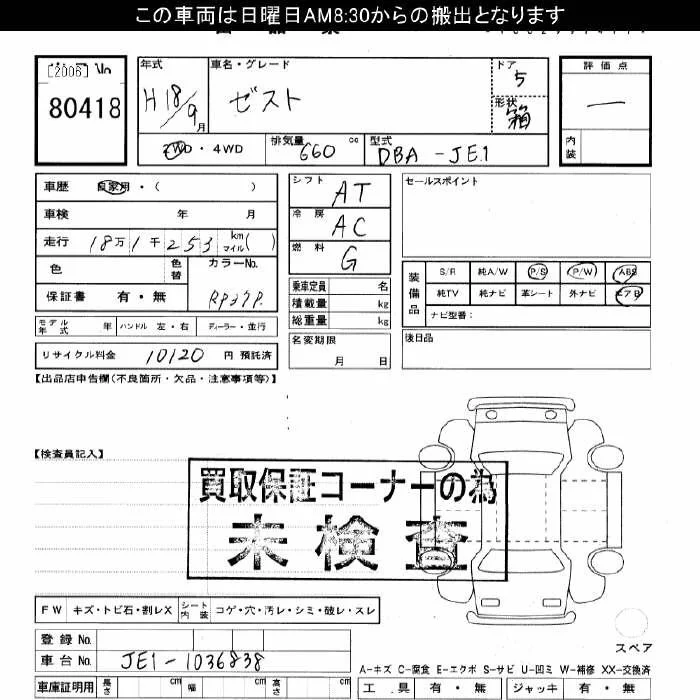 この車両は日曜日AM8:30からの搬出となります
[2006] No
80418
年式 H18/9月
車名・グレード ゼスト
ドア 5
形状 箱
評価点 —
内装
2WD・4WD
排気量 660 cc
型式 DBA-JE1
車歴 自家用・( )
車検 年 月
走行 18万1千253 km マイル( )
色 色替 カラーNo. RP37P
保証書 有・無
モデル年式 年 ハンドル 左・右 ディーラー・並行
リサイクル料金 10120 円 預託済
シフト AT
冷房 AC
燃料 G
乗車定員 名
積載量 kg
総重量 kg
名変期限 月 日
セールスポイント
装備品
S/R 純A/W P/S P/W ABS
純TV 純ナビ 革シート 外ナビ エアB
ナビ型番:
後日品
【出品店申告欄(不良箇所・欠品・注意事項等)】
【検査員記入】
買取保証コーナーの為
未検査
FW キズ・トビ石・割レX シート内装 コゲ・穴・汚レ・シミ・破レ・スレ
登録No.
車台No. JE1-1036838
車庫証明用 長さ cm 幅 cm 高さ cm
スペア
A-キズ C-腐食 E-エクボ S-サビ U-凹ミ W-補修 XX-交換済
工具 有・無 ジャッキ 有・無